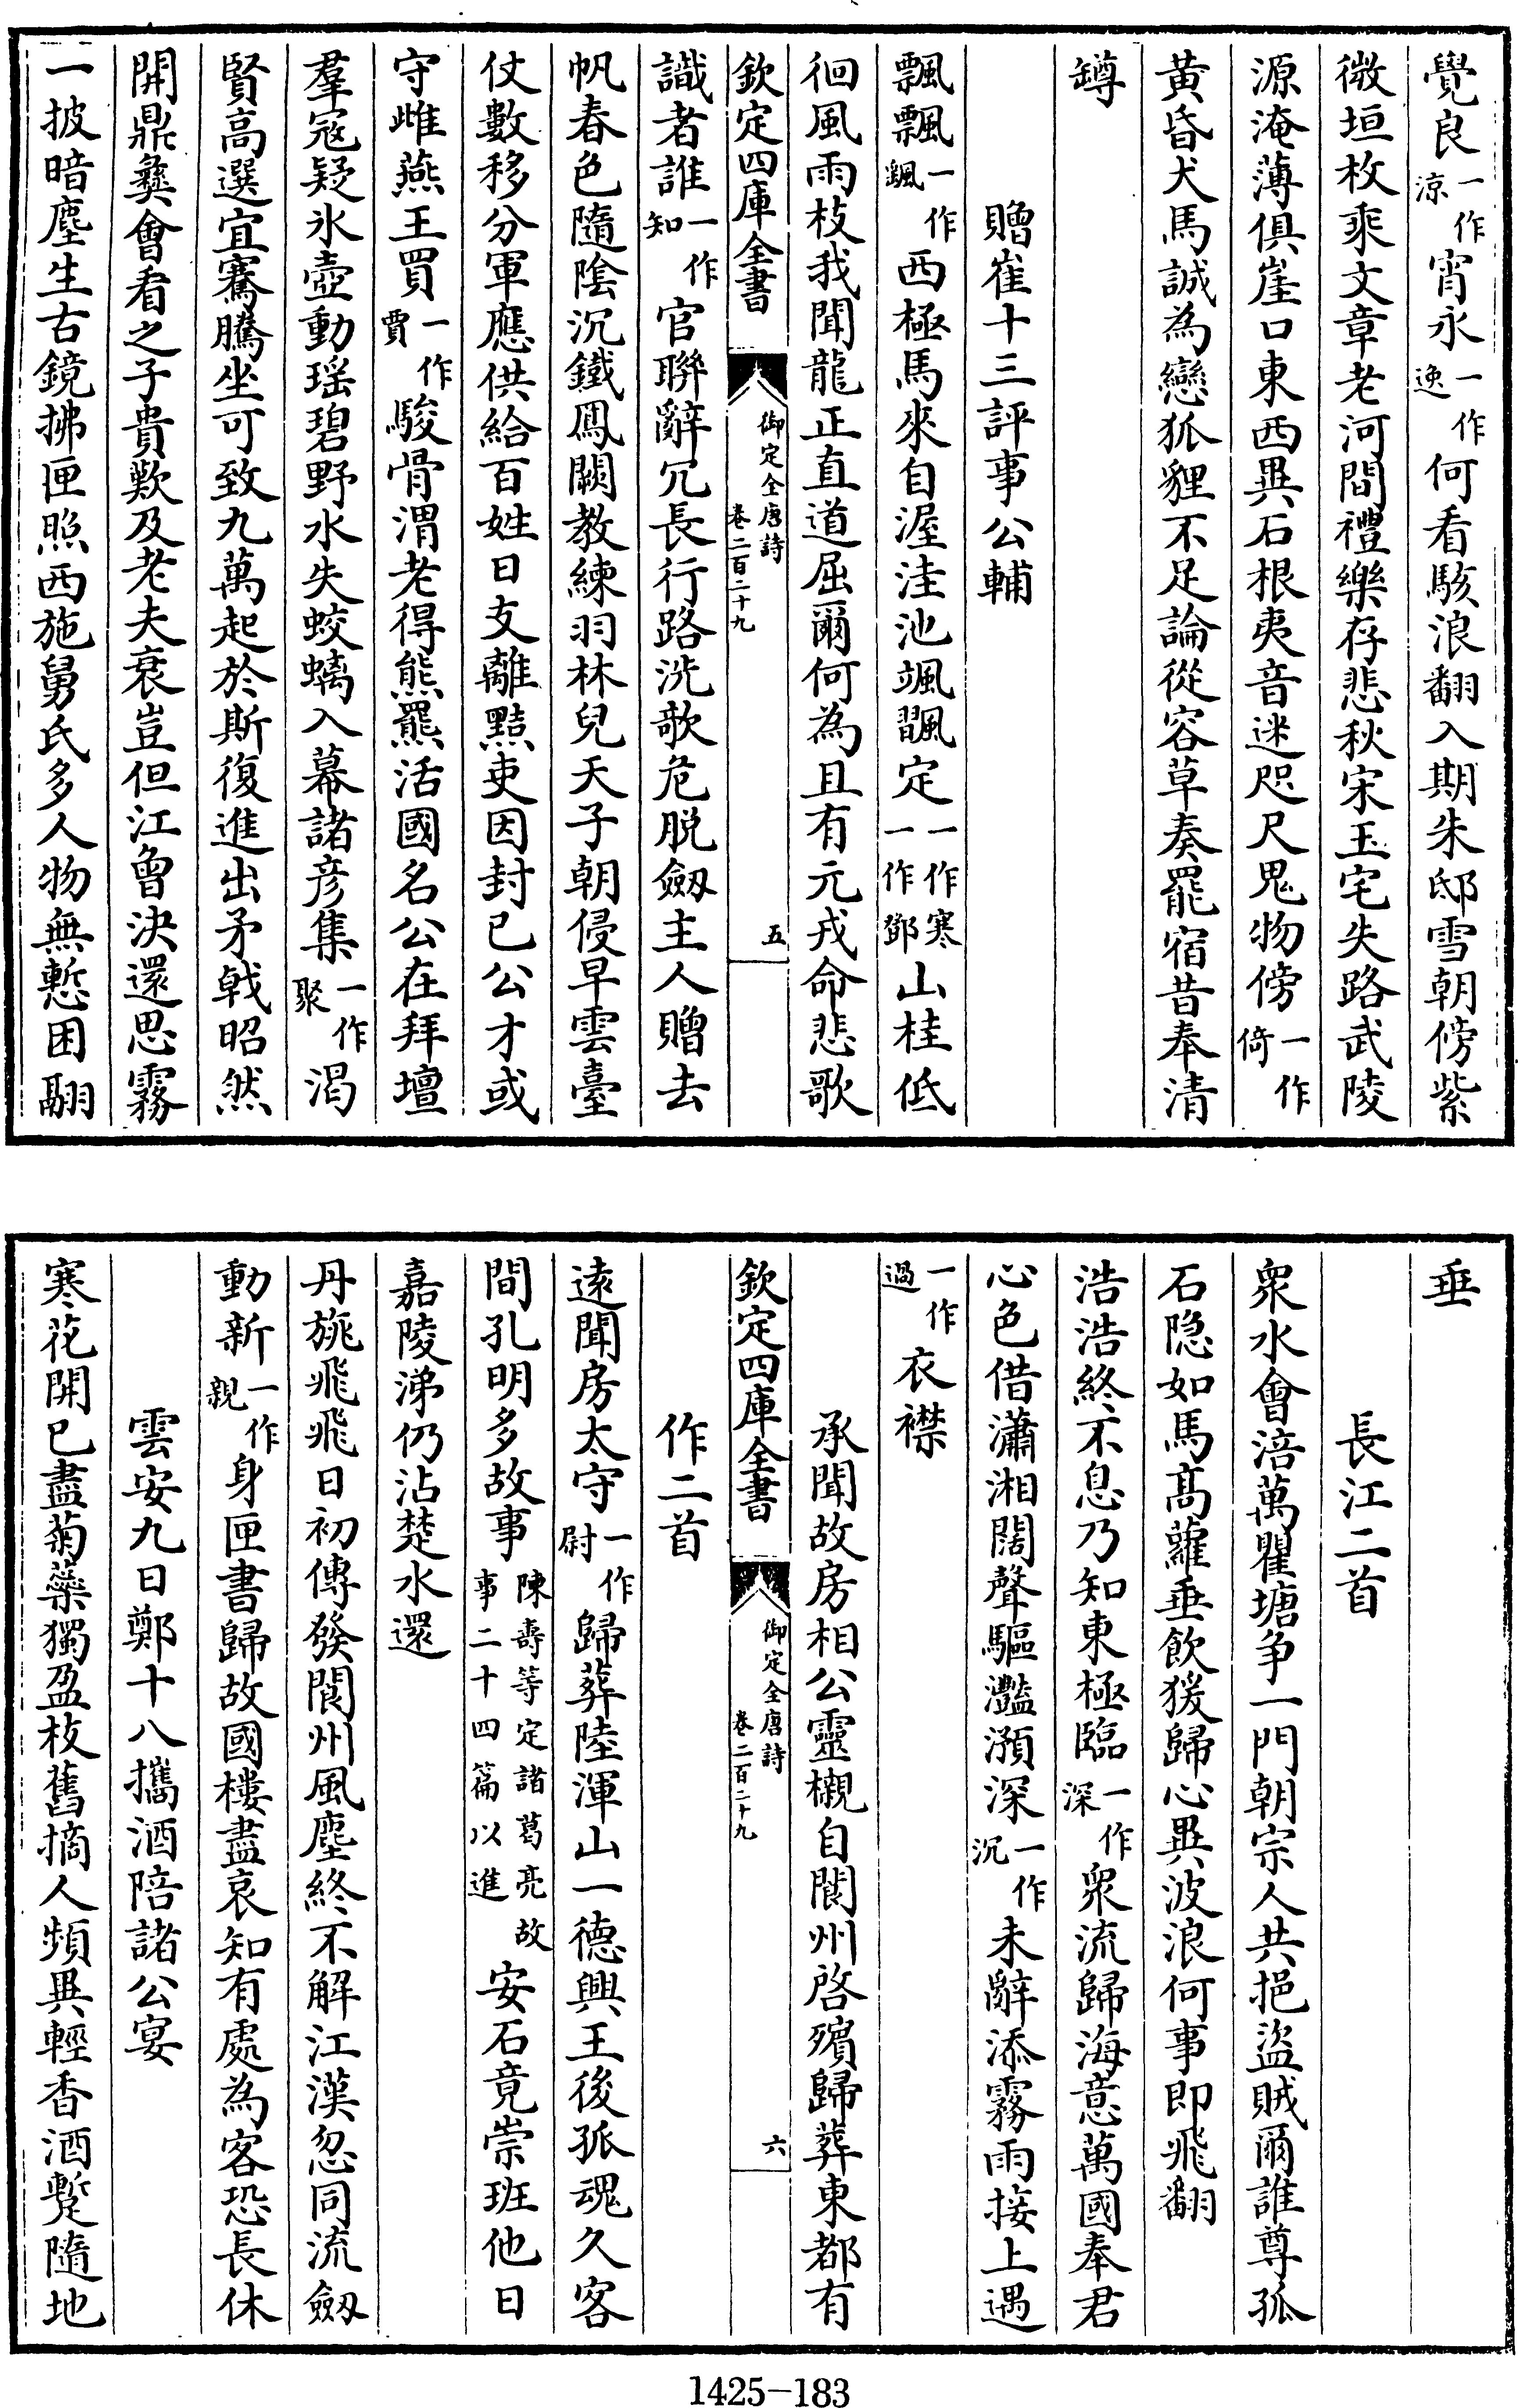 覺良一作涼宵永一作逸何看駭浪翻入期朱邸雪朝傍紫
微垣枚乘文章老河間禮樂存悲秋宋玉宅失路武陵
源淹薄俱崖口東西異石根夷音迷咫尺鬼物傍一作倚
黄昏犬馬誠為戀狐貍不足論從容草奏罷宿昔奉清
罇
贈崔十三評事公輔
飄飄一作颻西極馬來自渥洼池颯䬃定一作寒一作鄧山桂低
徊風雨枝我聞龍正直道屈爾何為且有元戎命悲歌
欽定四庫全書
御定全唐詩
卷二百二十九
五
識者誰一作知官聯辭冗長行路洗歌危脱劔主人贈去
帆春色隨陰沉鐵鳳闕教練羽林兒天子朝侵早雲臺
仗數移分軍應供給百姓日支離黠吏因封已公才或
守雌燕王買一作賈駿骨渭老得熊羆活國名公在拜壇
羣寇疑氷壺動瑶碧野水失蛟螭入幕諸彦集一作聚渴
賢高選宜騫騰坐可致九萬起於斯復進出矛戟昭然
開鼎彝會看之子貴歎及老夫衰豈但江曾決還思霧
一披暗塵生古鏡拂匣照西施舅氏多人物無慙困翮
垂
長江二首
衆水會涪萬瞿塘爭一門朝宗人共挹盜賊爾誰尊孤
石隠如馬髙蘿垂飲猨歸心異波浪何事即飛翻
浩浩終不息乃知東極臨一作深衆流歸海意萬國奉君
心色借瀟湘闊聲驅灩澦深一作沉未辭添霧雨接上遇
一作過衣襟
承聞故房相公靈櫬自閬州啓殯歸葬東都有
欽定四庫全書
御定全唐詩
卷二百二十九
六
作二首
逺聞房太守一作尉歸葬陸渾山一德興王後孤魂久客
間孔明多故事陳壽等定諸葛亮故事二十四篇以進安石竟崇班他日
嘉陵涕仍沾楚水還
丹旐飛飛日初傳發閬州風塵終不解江漢忽同流劔
動新一作親身匣書歸故國樓盡哀知有處為客恐長休
雲安九日鄭十八攜酒陪諸公宴
寒花開已盡菊蘂獨盈枝舊摘人頻異輕香酒蹔隨地
1425-183